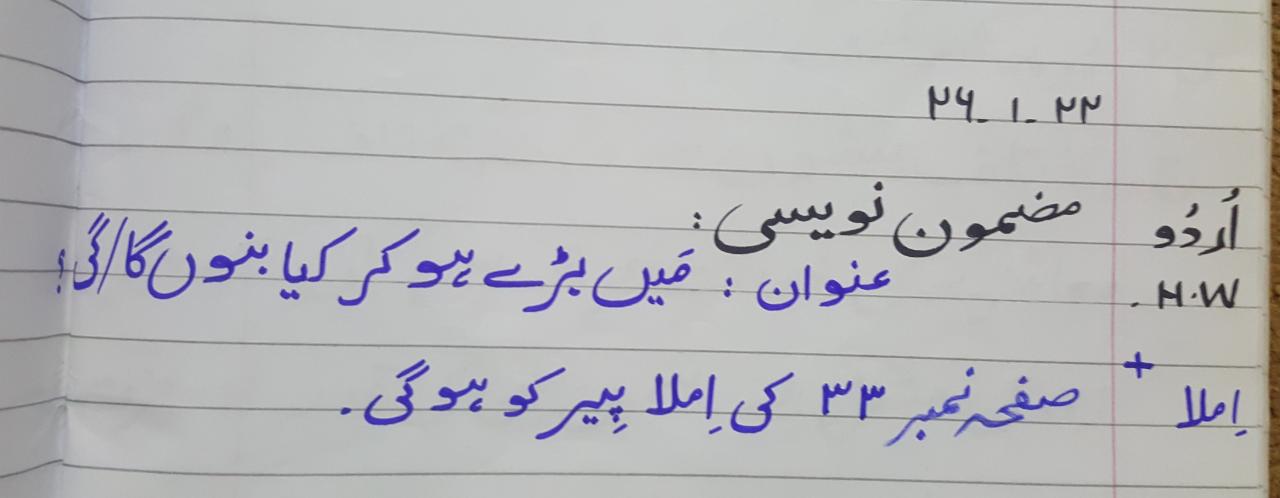 ۲۶-۱-۲۲
اُردُو مضمون نویسی :
H.W. عنوان : مَیں بڑے ہو کر کیا بنوں گا/گی؟
+
اِملا صفحہ نمبر ۳۳ کی اِملا پِیر کو ہو گی.